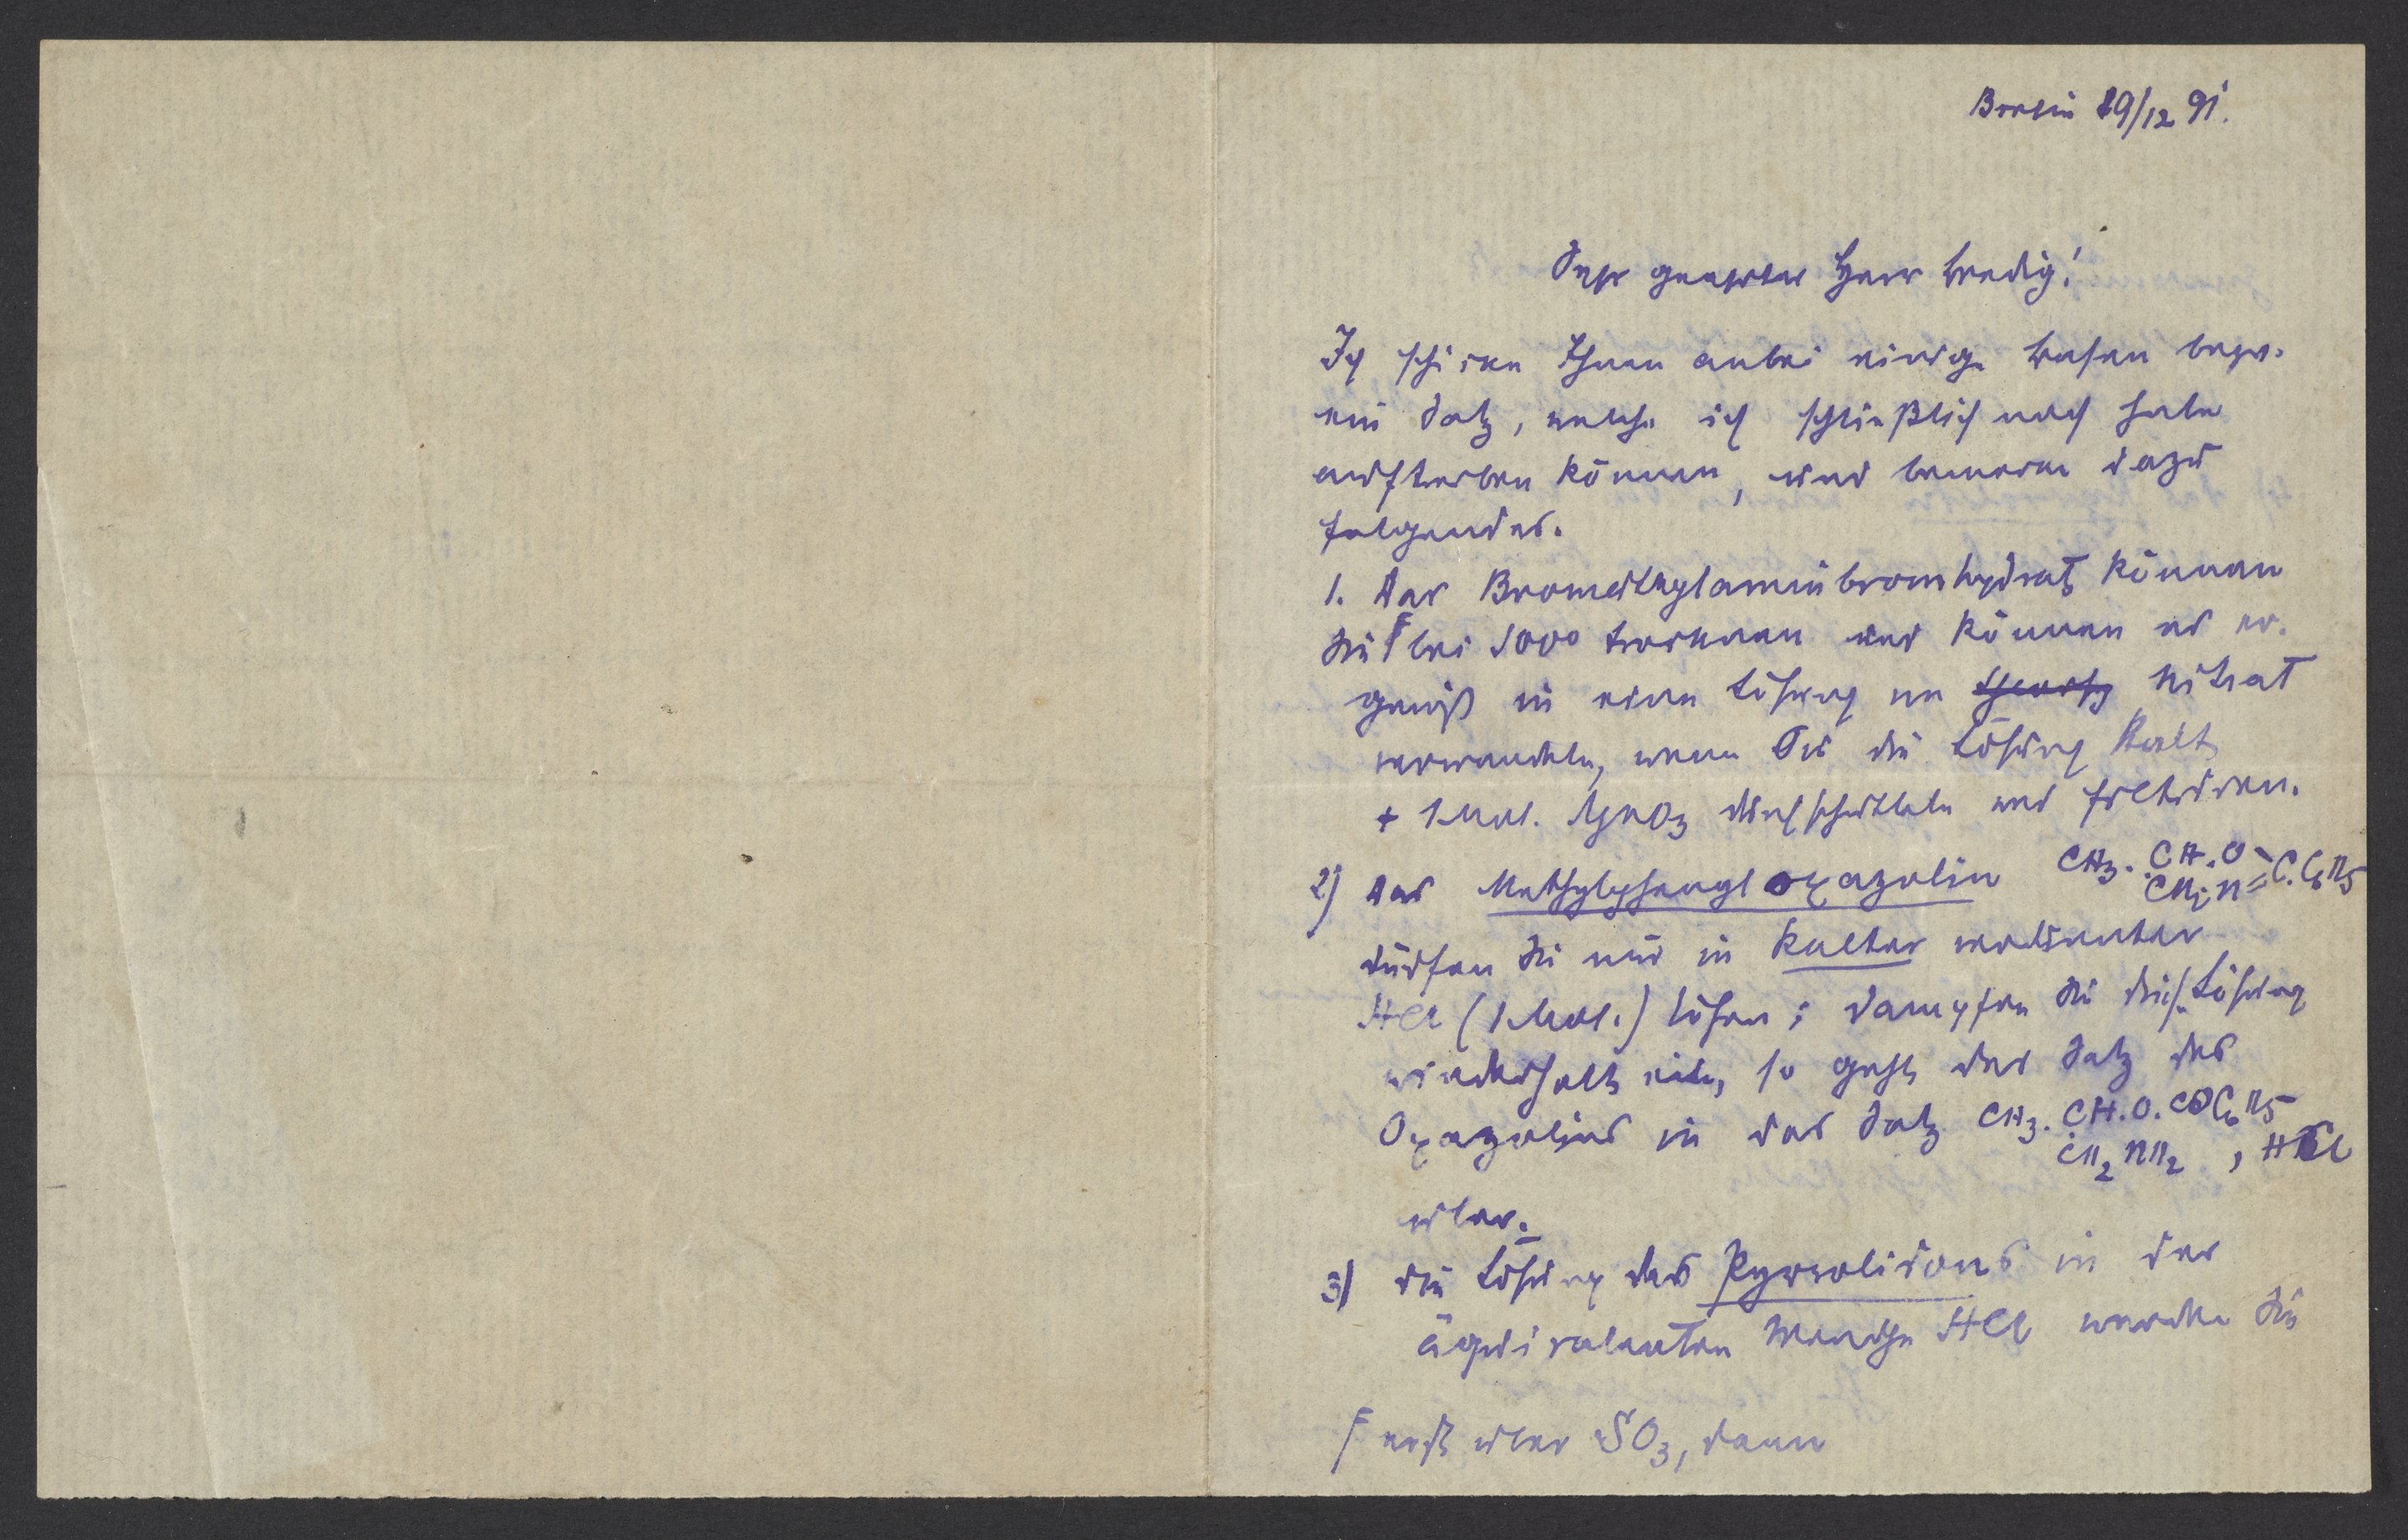 Berlin 29/12 91.
Sehr geehrter Herr Bredig!
Ich schicke Ihnen anbei einige Basen bezw.
ein Salz, welche ich schließlich noch habe
auftreiben können, und bemerke dazu
folgendes.
1. Das Bromethylaminbromhydrat können
Sie ⌈ bei 100° trocknen und können es ev.
gewiß in eine Lösung von Nitrat
verwandeln, wenn Sie die Lösung kalt
+ 1 Mol. AgNO3 durchschütteln und filtriren.
2) Das Methylphenyloxazolin CH3.CH.O\C.C6H5
CH2.N//
dürfen Sie nur in kalter verdünnter
HCl (1 Mol.) lösen; dampfen Sie diese Lösung
wiederholt ein, so geht das Salz des
Oxazolins in das Salz CH3.CH.O.COC6H5
CH2NH2, HCl
über.
3) Die Lösung des Pyrrolidons in der
äquivalenten Menge HCl werden Sie
⌈ erst über SO3, dann